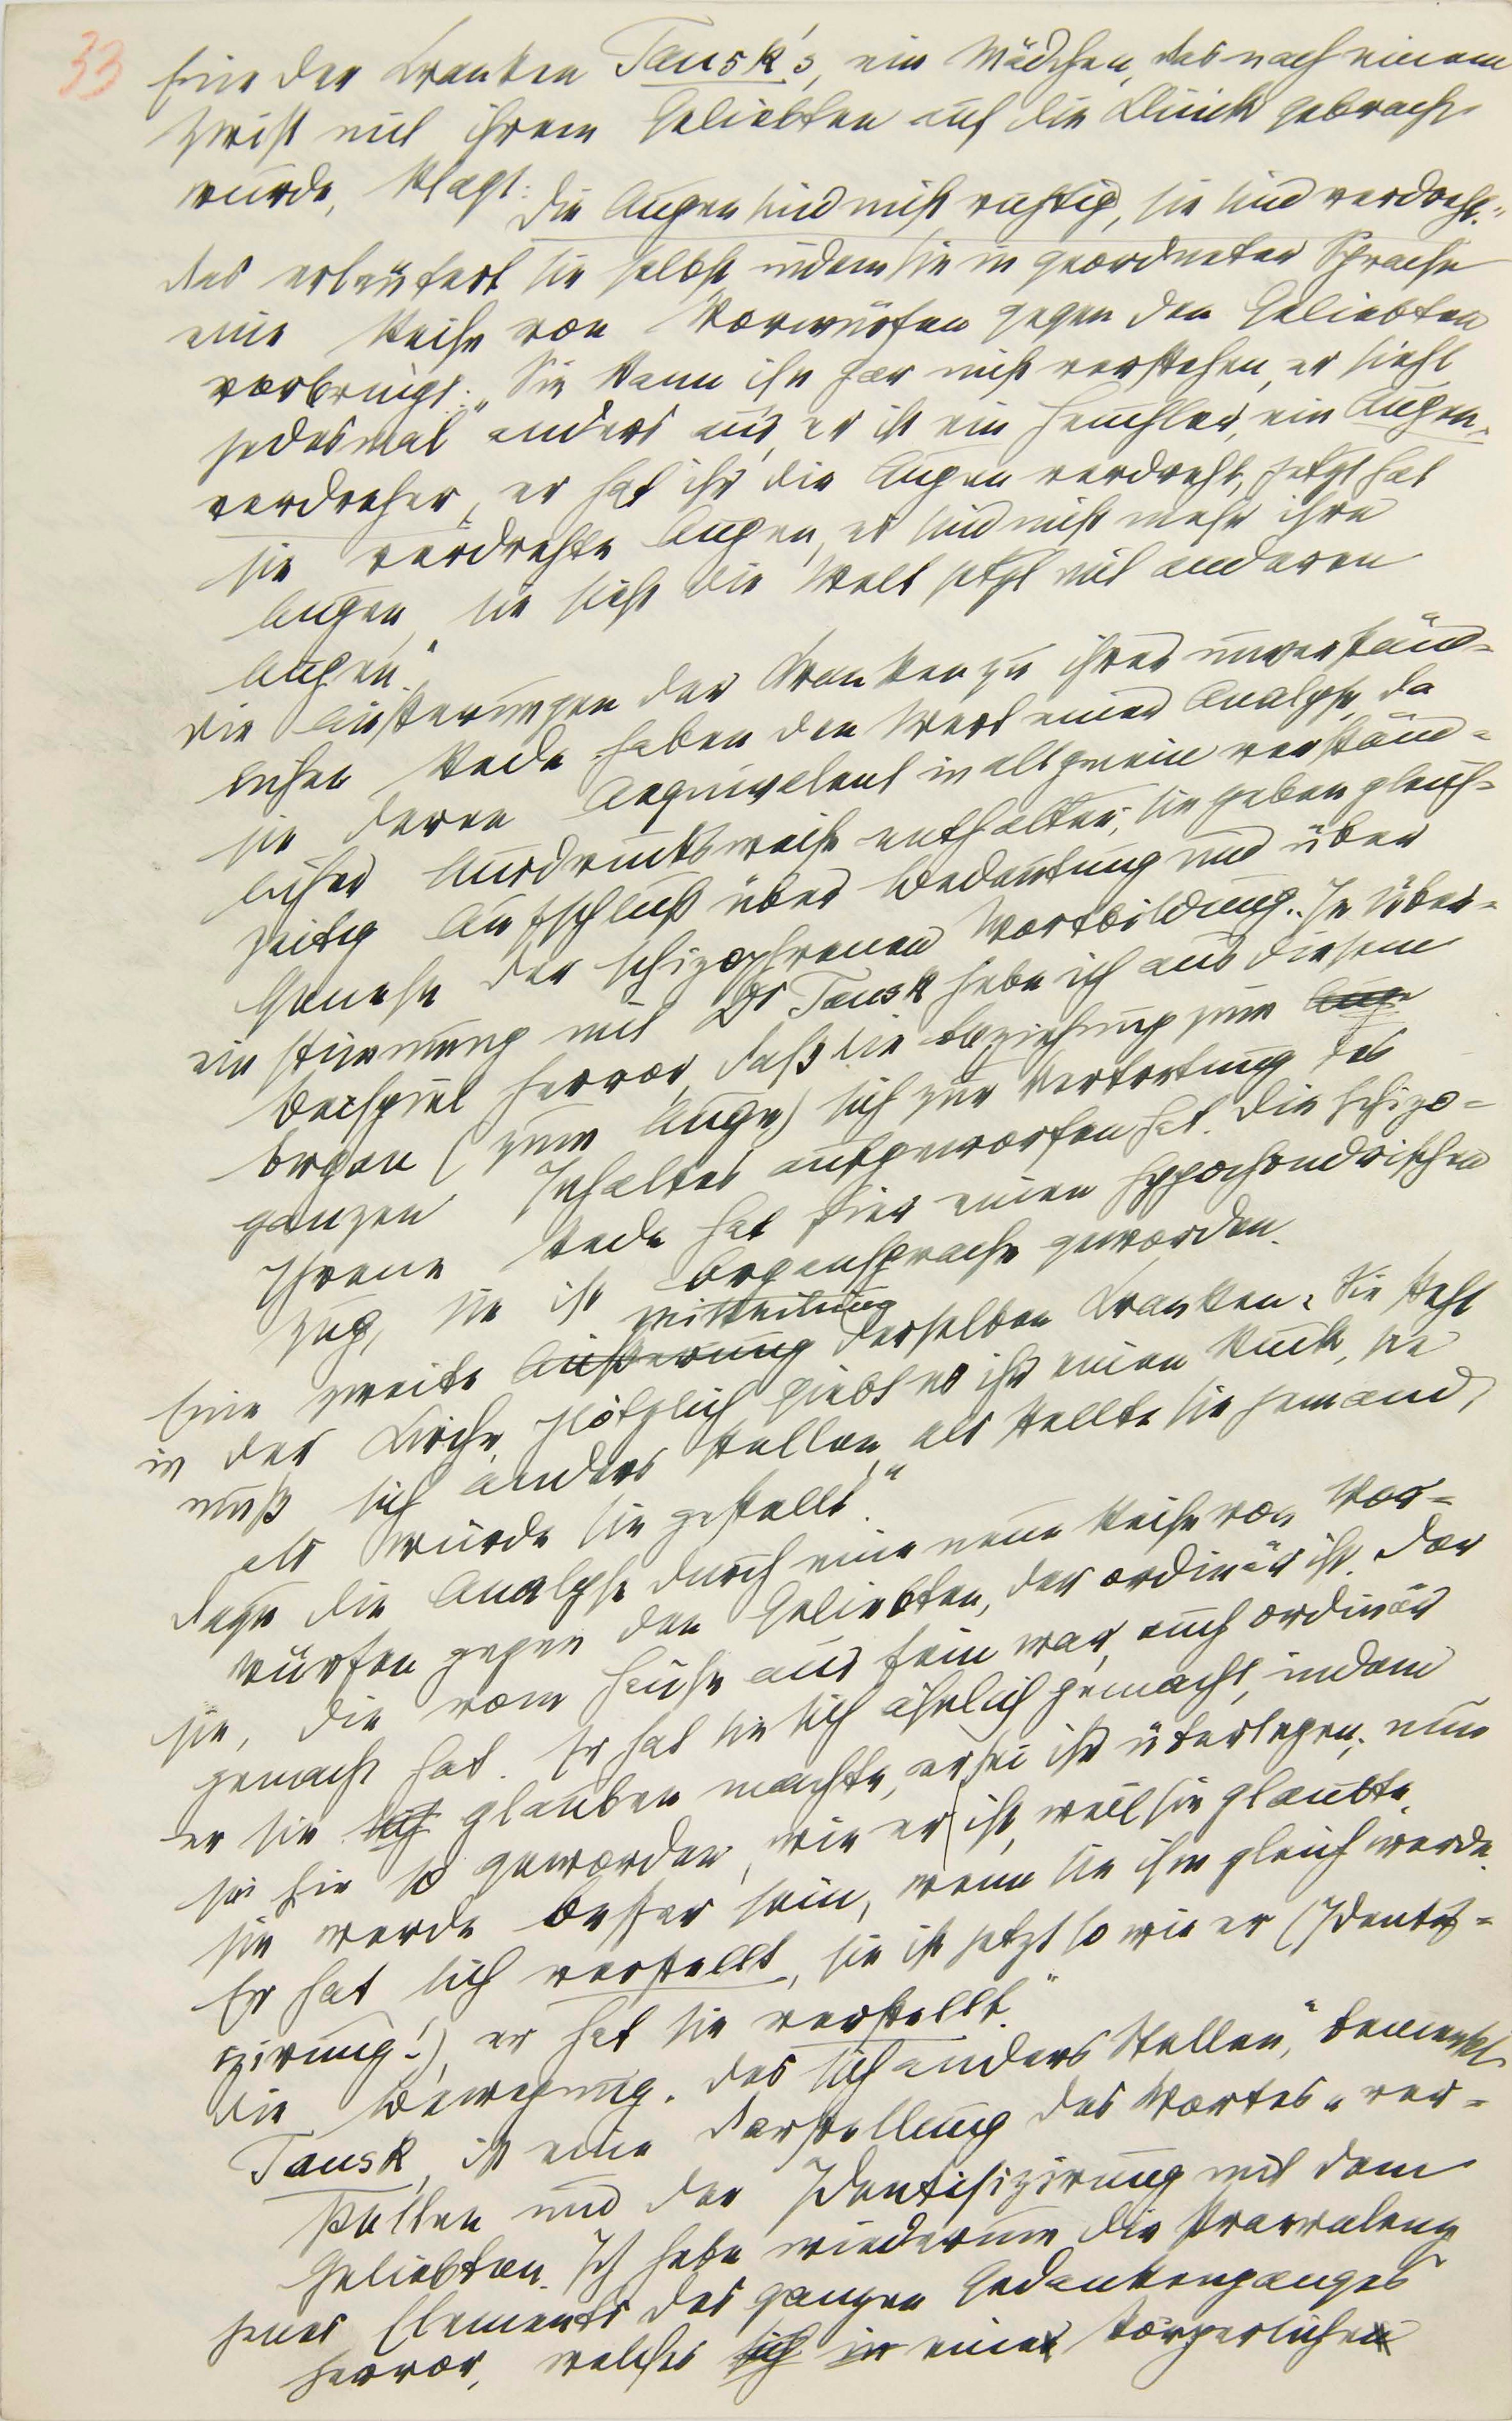 33
Eine der Kranken Tausk's, ein Mädchen, das nach einem
Zwist mit ihrem Geliebten auf die Klinik gebracht
wurde, klagt:
Die Augen sind nicht richtig, sie sind verdreht."
Das erläutert sie selbst, indem sie in geordneter Sprache
eine Reihe von Vorwürfen gegen den Geliebten
vorbringt. „Sie kann ihn gar nicht verstehen, er sieht
jedesmal anders aus, er ist ein Heuchler, ein Augen-
verdreher, er hat ihr die Augen verdreht, jetzt hat
sie verdrehte Augen, es sind nicht mehr ihre
Augen, sie sieht die Welt jetzt mit anderen
Augen."
Die Äußerungen der Kranken zu ihrer unverständ-
lichen Rede haben den Wert einer Analyse, da
sie deren Aequivalent in allgemein verständ-
licher Ausdrucksweise enthalten; sie geben gleich-
zeitig Aufschluß über Bedeutung und über
Genese der schizophrenen Wortbildung. In Über-
einstimmung mit Dr Tausk hebe ich aus diesem
Beispiel hervor, daß die Beziehung zum Auge
Organ (zum Auge) sich zur Vertretung des
ganzen Inhaltes aufgeworfen hat. Die schizo-
phrene Rede hat hier einen hypochondrischen
Zug, sie ist Organsprache geworden.
Mitteilung
Eine zweite Äußerung derselben Kranken: „Sie steht
in der Kirche, plötzlich giebt es ihr einen Ruck, sie
muß sich anders stellen, als stellte sie jemand,
als würde sie gestellt."
Dazu die Analyse durch eine neue Reihe von Vor-
würfen gegen den Geliebten, der ordinär ist, der
sie, die vom Hause aus fein war, auch ordinär
gemacht hat. Er hat sie sich ähnlich gemacht, indem
er sie sich glauben machte, er sei ihr überlegen; nun
sei sie so geworden, wie er ist, weil sie glaubte,
sie werde besser sein, wenn sie ihm gleich werde.
Er hat sich verstellt, sie ist jetzt so wie er (Identifi-
zirung!), er hat sie verstellt."
Die Bewegung „des sich anders Stellen", bemerkt
Tausk, ist eine Darstellung des Wortes „ver-
stellen und der Identifizirung mit dem
Geliebten. Ich hebe wiederum die Praevalenz
jenes Elements des ganzen Gedankenganges
hervor, welches sich in einer körperlichen